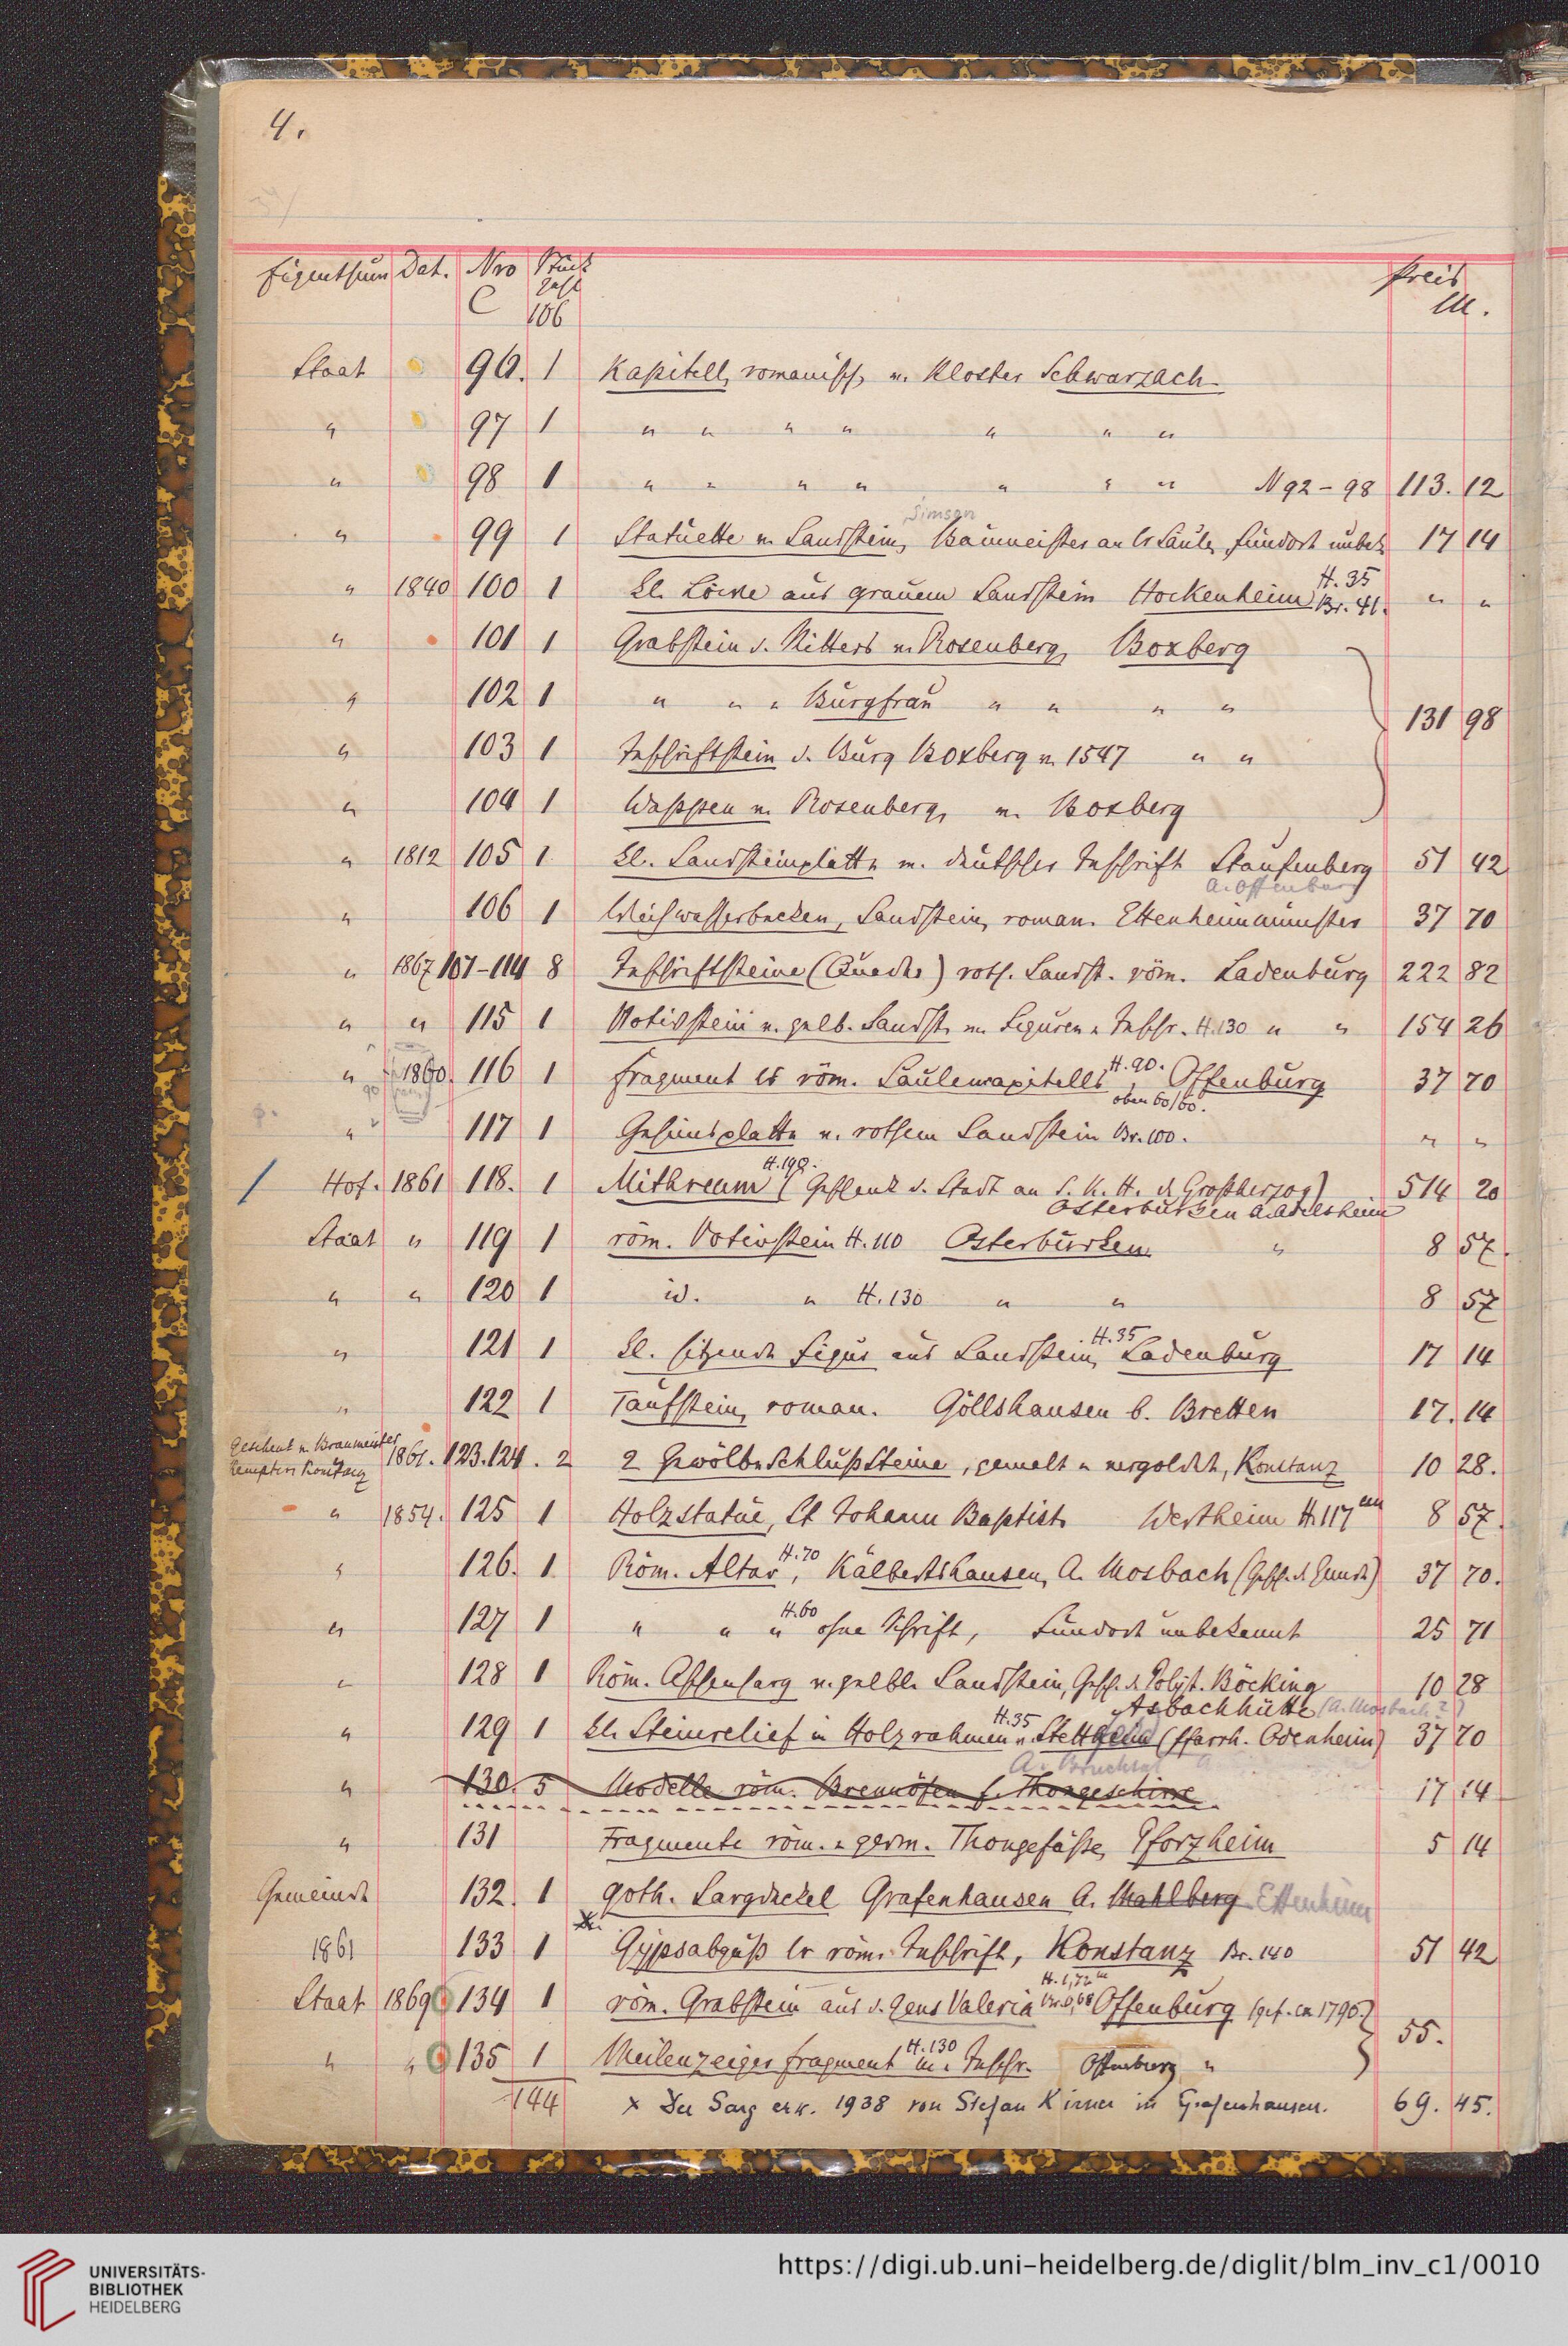 4.
Eigenthum Dat. Nro Stück Preis
C zahl M.
106
Staat 96. 1 Kapitell, romanisch, v. Kloster Schwarzach
" 97 1 " " " " " " "
" 98 1 " " " " " " " N 92-98 113. 12
Simson
" 99 1 Statuette v. Sandstein, Baumeister an er Säule, Fundort unbek. 17 14
" 1840 100 1 kl. Löwe aus grauem Sandstein Hockenheim H. 35 Br. 41. " "
" 101 1 Grabstein d. Ritters v. Rosenberg, Boxberg
" 102 1 " " " Burgfrau " " " " 131 98
" 103 1 Inschriftstein d. Burg Boxberg v. 1547 " "
" 104 1 Wappen v. Rosenberg, v. Boxberg
" 1812 105 1 kl. Sandsteinplatte m. deutscher Inschrift Staufenberg 51 42
A. Offenburg
" 106 1 Weihwasserbecken, Sandstein, roman. Ettenheimmünster 37 70
" 1867 107-114 8 Inschriftsteine (Quader) roth. Sandst. röm. Ladenburg 222 82
" " 115 1 Votivstein v. gelb. Sandst. m. Figuren u Inschr. H. 130 " " 154 26
" 1860. 116 1 Fragment es röm. Säulencapitells H. 90. oben 60/60. Offenburg 37 70
" 117 1 Gesimsplatte v. rothem Sandstein Br. 100. " "
Hof. 1861 118. 1 Mithreum H. 190. (Geschenk d. Stadt an S. K. H. d. Großherzog) 514 20
Osterburken A. Adelsheim
Staat " 119 1 röm. Votivstein H. 110 Osterburken " 8 57.
" " 120 1 id. " H. 130 " " 8 57
" 121 1 kl. sitzende Figur aus Sandstein, H. 35 Ladenburg 17 14
" 122 1 Taufstein, roman. Göllshausen b. Bretten 17. 14
Geschenk v. Braumeister
1861. 123.124. 2 2 Gewölbe Schlußsteine, gemalt u vergoldet, Konstanz 10 28.
" 1854. 125 1 Holzstatue, St Johann Baptist. Wertheim H. 117 cm 8 57.
" 126. 1 Röm. Altar, H. 70 Kälbertshausen, A. Mosbach (Gesch. d. Gemde) 37 70.
" 127 1 " " " H. 60 ohne Schrift, Fundort unbekannt 25 71
" 128 1 Röm. Aschensarg v. gelbl. Sandstein, Gesch. d. Böcking 10 28
Asbachhütte (A. Mosbach?)
" 129 1 kl. Steinrelief in Holzrahmen H. 35 v. Stettfeld (Pfarrh. Odenheim) 37 70
A. Bruchsal
" 130. 5 Modelle röm. Brennöfen f. Thongeschirre 17 14
" 131 Fragmente röm. u germ. Thongefäße, Pforzheim 5 14
Gemeinde 132. 1 goth. Sargdeckel Grafenhausen A. Mahlberg Ettenheim
x.
1861 133 1 Gypsabguß er röm. Inschrift, Konstanz Br. 140 51 42
Staat 1869 134 1 röm. Grabstein aus d. gens Valeria H. 1,72 m Br. 0,68 Offenburg (gef. ca 1790.)
55.
" " 135 1 Meilenzeiger fragment H. 130 m. Inschr. Offenburg "
144 x Der Sarg erw. 1938 von Stefan Kirner in Grafenhausen. 69. 45.
UNIVERSITÄTS-
BIBLIOTHEK
HEIDELBERG
https://digi.ub.uni-heidelberg.de/diglit/blm_inv_c1/0010